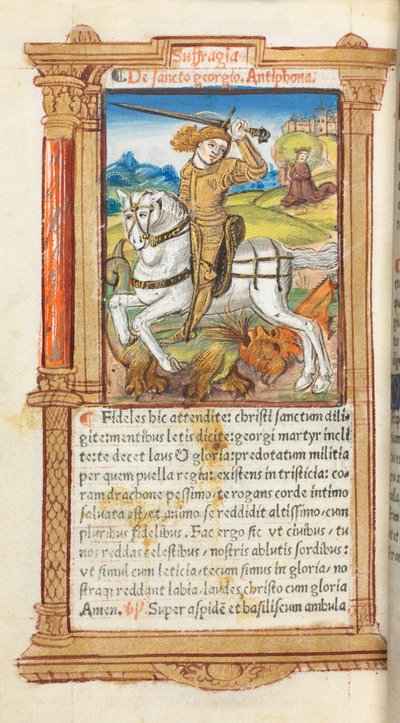 Suffragia
¶ De sancto georgio. Antiphona.
¶ Fideles hic attendite: christi sanctum dili
gite: mentibus letis dicite: georgi martyr incli
te: te decet laus & gloria: predotatum militia
per quem puella regia: existens in tristicia: co-
ram drachone pessimo/te rogans corde intimo
saluata est/et animo se reddidit altissimo/cum
pluribus fidelibus. Fac ergo sic vt ciuibus/tu
nos reddas celestibus/nostris ablutis sordibus:
vt simul cum leticia/tecum simus in gloria/no
straq; reddant labia/laudes christo cum gloria
Amen. ℣. Super aspidē et basiliscum ambula